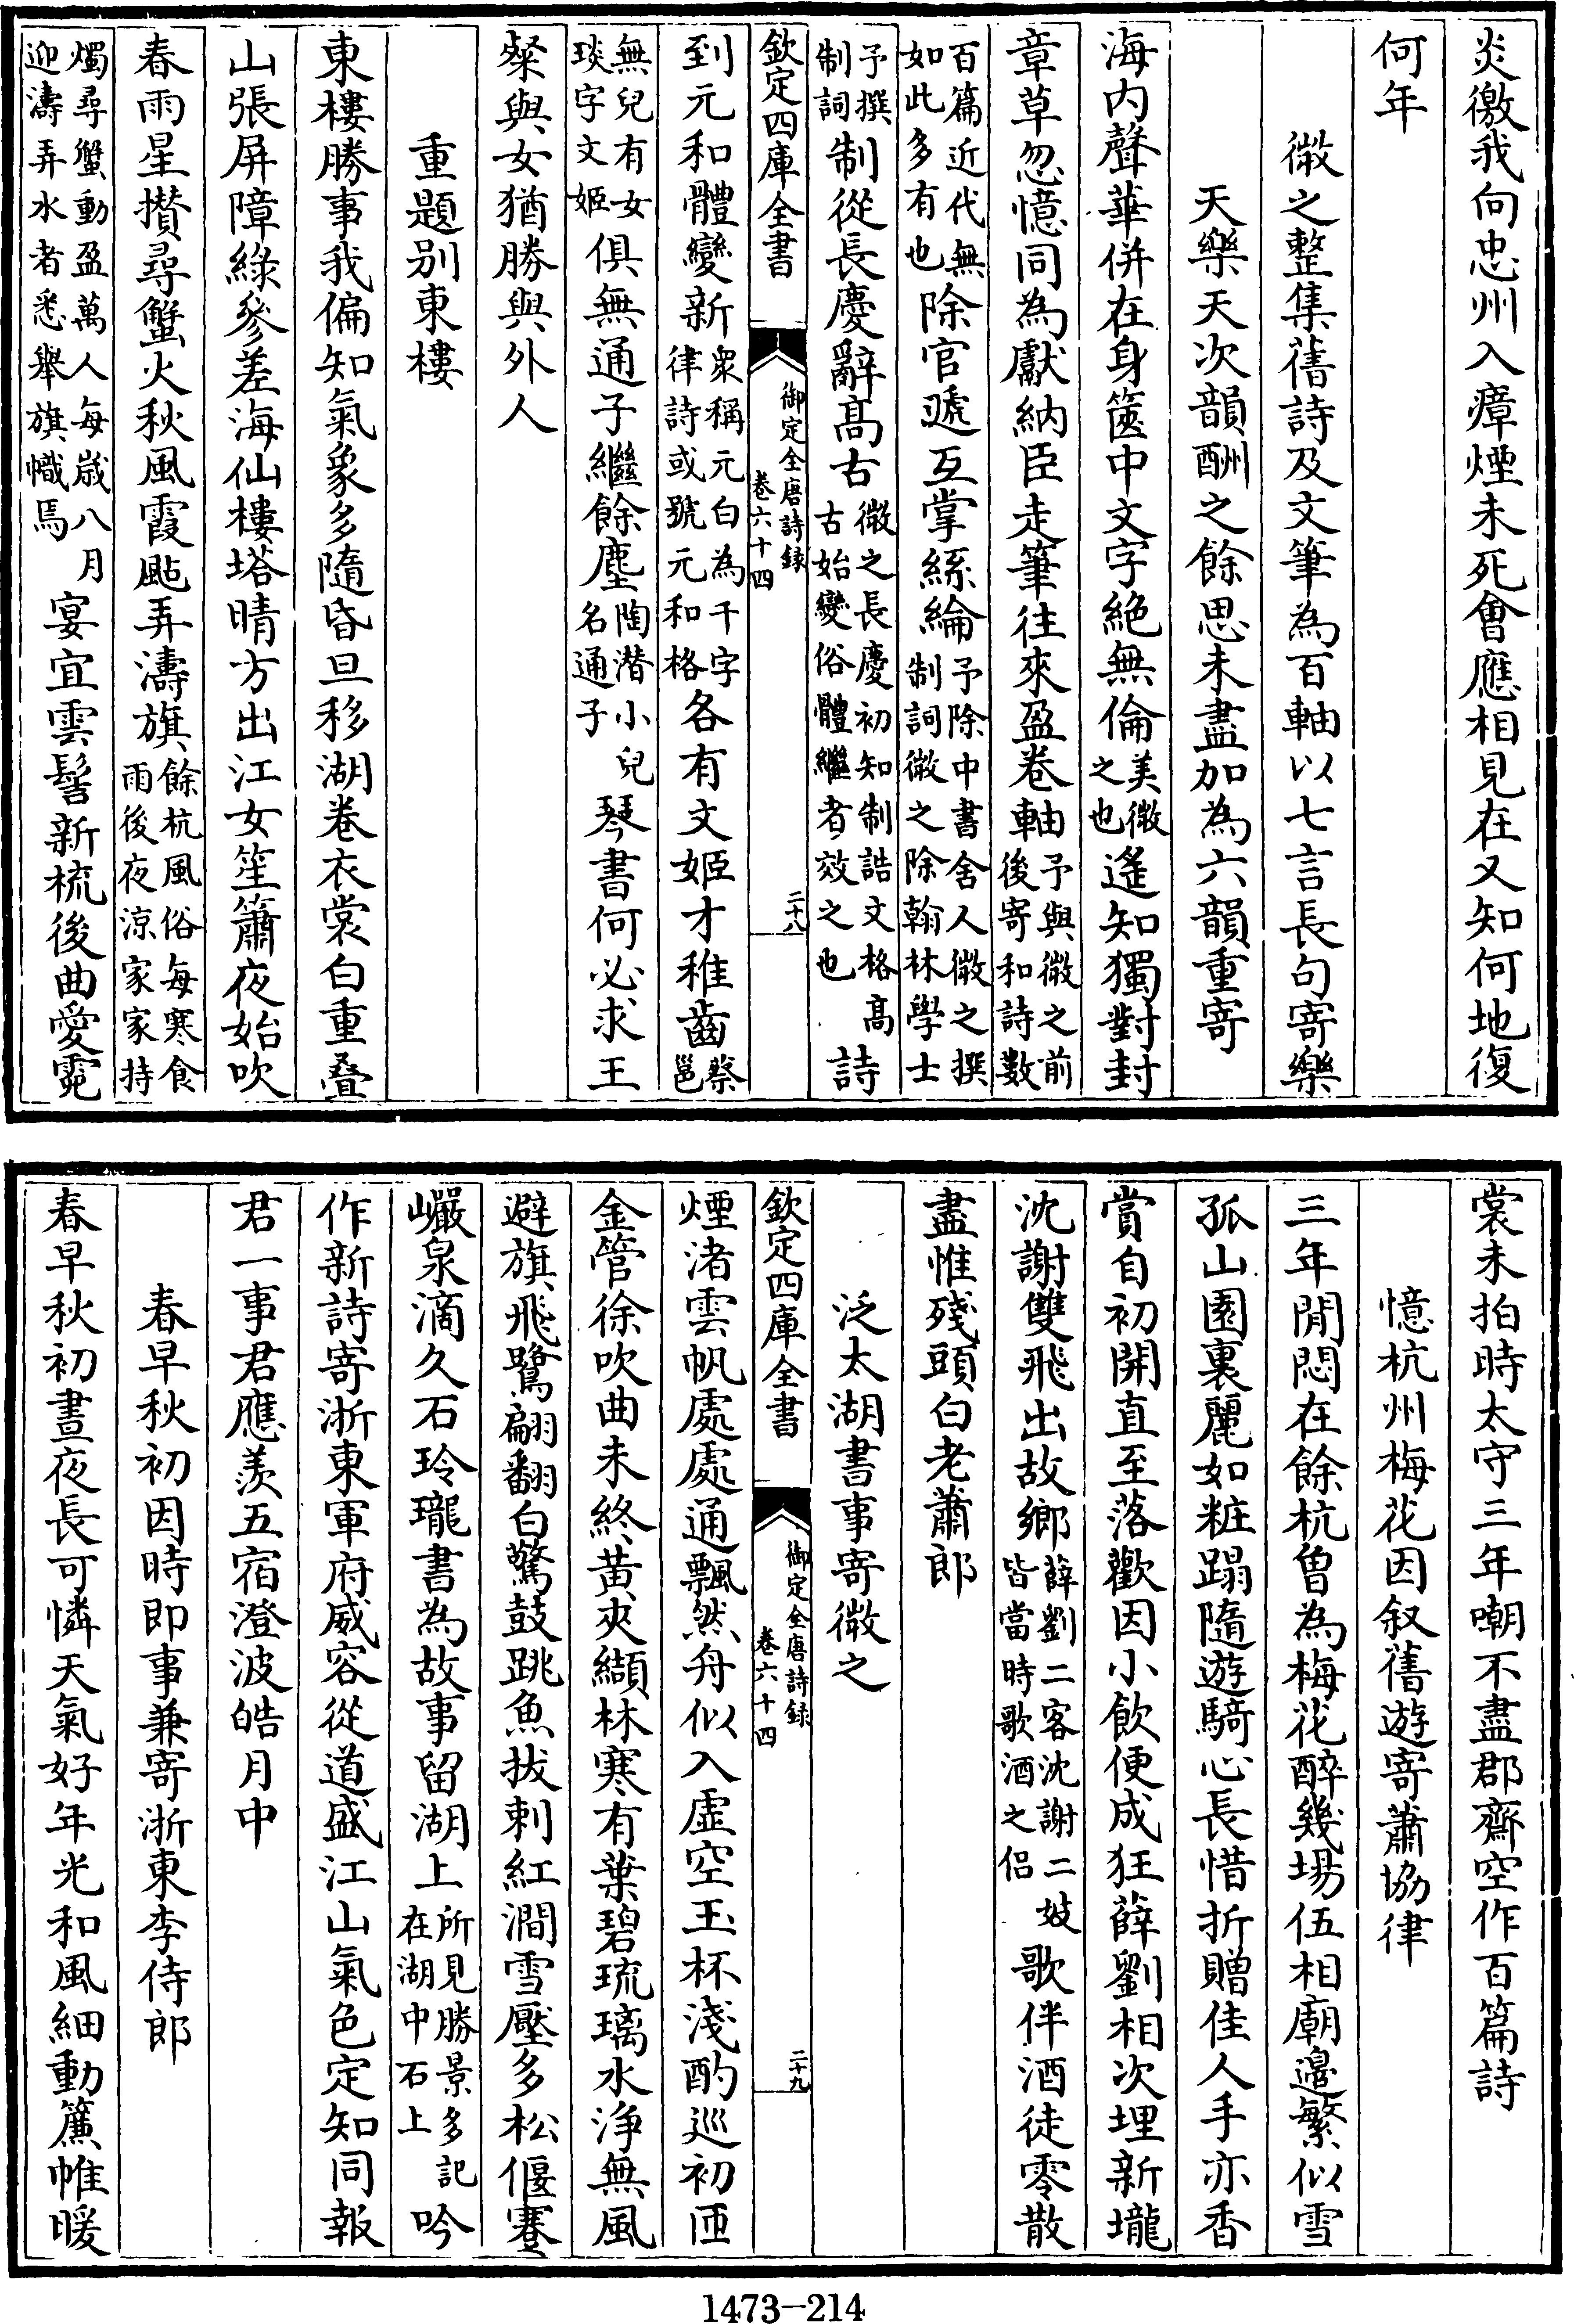 炎徼我向忠州入瘴煙未死會應相見在又知何地復
何年
微之整集舊詩及文筆為百軸以七言長句寄樂
天樂天次韻酬之餘思未盡加為六韻重寄
海内聲華併在身篋中文字絶無倫美微之也遙知獨對封
章草忽憶同為獻納臣走筆往來盈卷軸予與微之前後寄和詩數
百篇近代無如此多有也除官遞互掌絲綸予除中書舍人微之撰制詞微之除翰林學士
予撰制詞制從長慶辭髙古微之長慶初知制誥文格髙古始變俗體繼者效之也詩
欽定四庫全書 御定全唐詩録卷六十四 二十八
到元和體變新衆稱元白為千字律詩或號元和格各有文姬才稚齒蔡邕
無兒有女琰字文姬俱無通子繼餘塵陶潛小兒名通子琴書何必求王
粲與女猶勝與外人
重題别東樓
東樓勝事我偏知氣象多隨昏旦移湖卷衣裳白重叠
山張屏障緑參差海仙樓塔晴方出江女笙簫夜始吹
春雨星攅尋蟹火秋風霞颭弄濤旗餘杭風俗每寒食雨後夜涼家家持
燭尋蟹動盈萬人每歳八月迎濤弄水者悉舉旗幟焉宴宜雲髻新梳後曲愛霓
裳未拍時太守三年嘲不盡郡齋空作百篇詩
憶杭州梅花因叙舊遊寄蕭協律
三年閒悶在餘杭曽為梅花醉幾場伍相廟邊繁似雪
孤山園裏麗如粧蹋隨遊騎心長惜折贈佳人手亦香
賞自初開直至落歡因小飲便成狂薛劉相次埋新壠
沈謝雙飛出故鄉薛劉二客沈謝二妓皆當時歌酒之侣歌伴酒徒零散
盡惟殘頭白老蕭郎
泛太湖書事寄微之
欽定四庫全書 御定全唐詩録卷六十四 二十九
煙渚雲帆處處通飄然舟似入虚空玉杯淺酌巡初匝
金管徐吹曲未終黄夾纈林寒有葉碧琉璃水浄無風
避旗飛鷺翩翻白驚鼓跳魚拔刺紅澗雪壓多松偃蹇
巖泉滴久石玲瓏書為故事留湖上所見勝景多記在湖中石上吟
作新詩寄浙東軍府威容從道盛江山氣色定知同報
君一事君應羨五宿澄波皓月中
春早秋初因時即事兼寄浙東李侍郎
春早秋初晝夜長可憐天氣好年光和風細動簾帷暖
1473-214